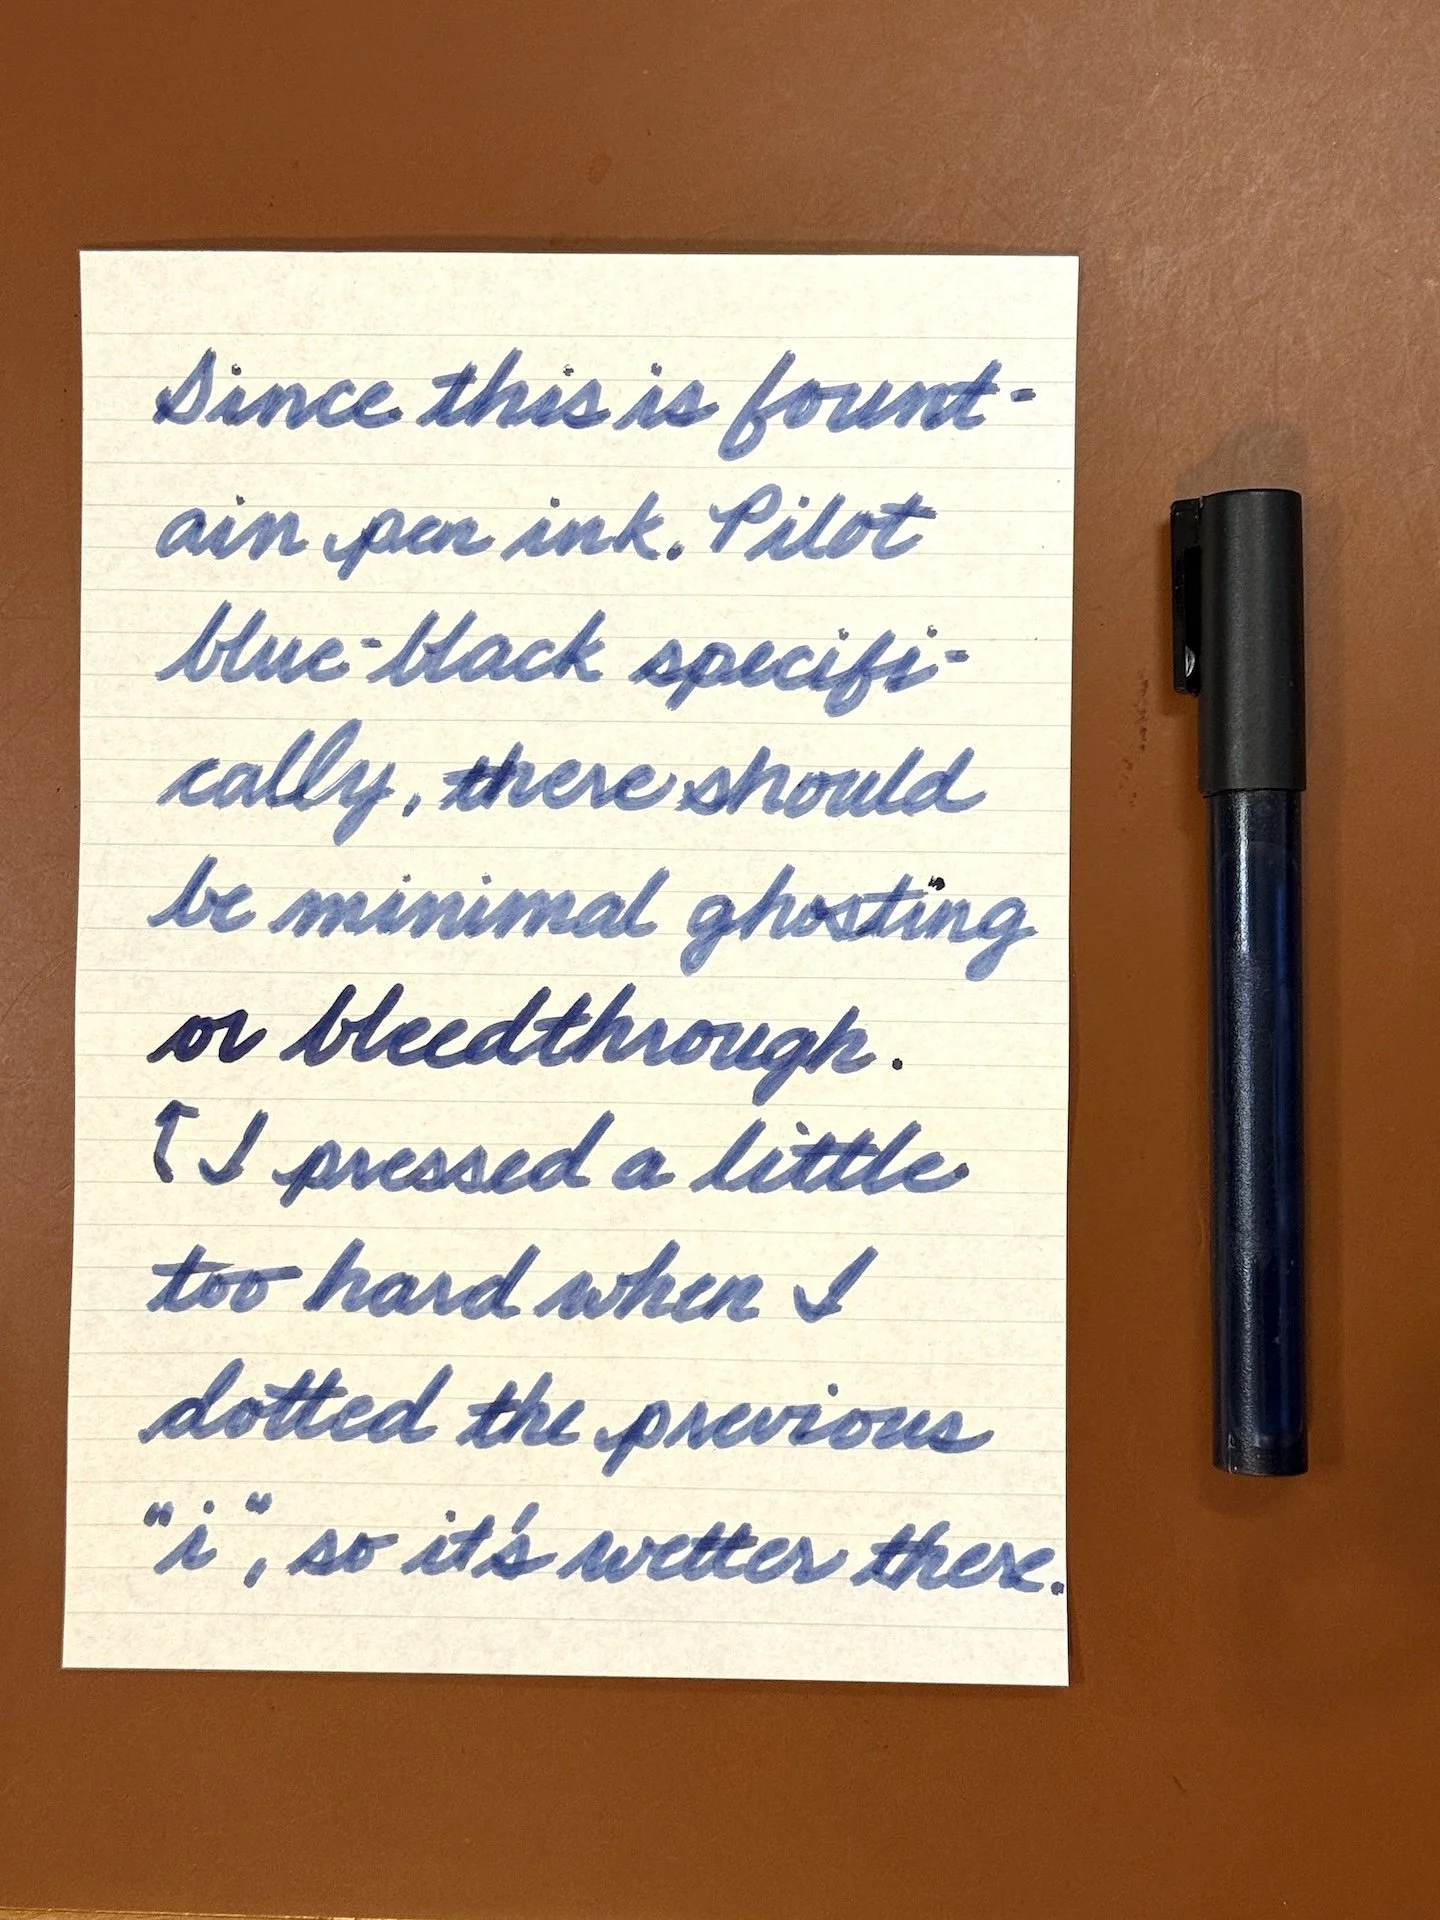 Since this is fount-
ain pen ink. Pilot
blue-black specifi-
cally, there should
be minimal ghosting
or bleedthrough.
↑ I pressed a little
too hard when I
dotted the previous
"i", so it's wetter there.